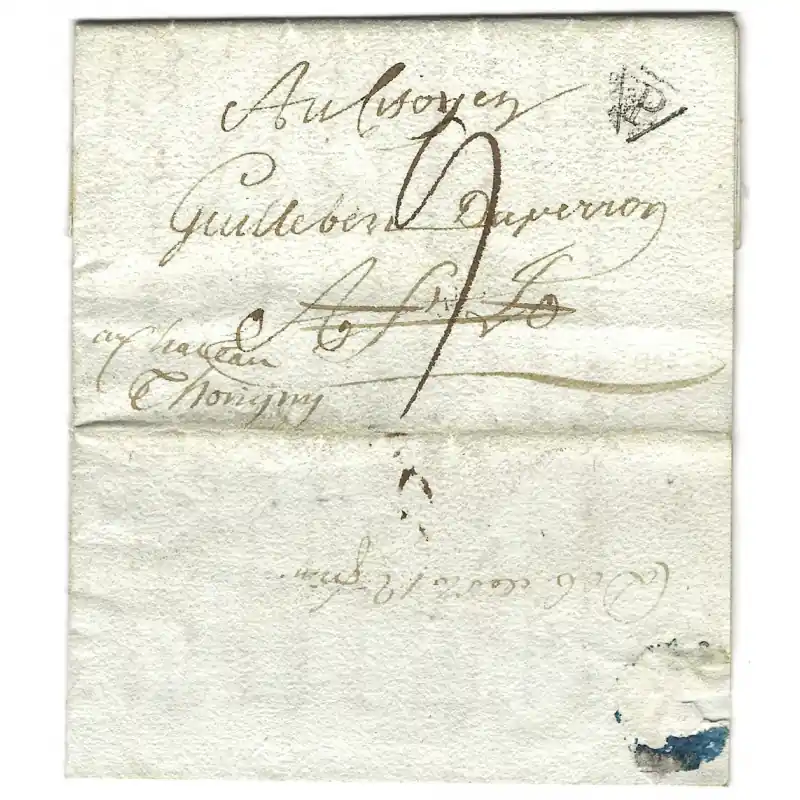 Au Citoyen
P
Guillebert Duperron
9
A St Lo
au chateau
Thorigny